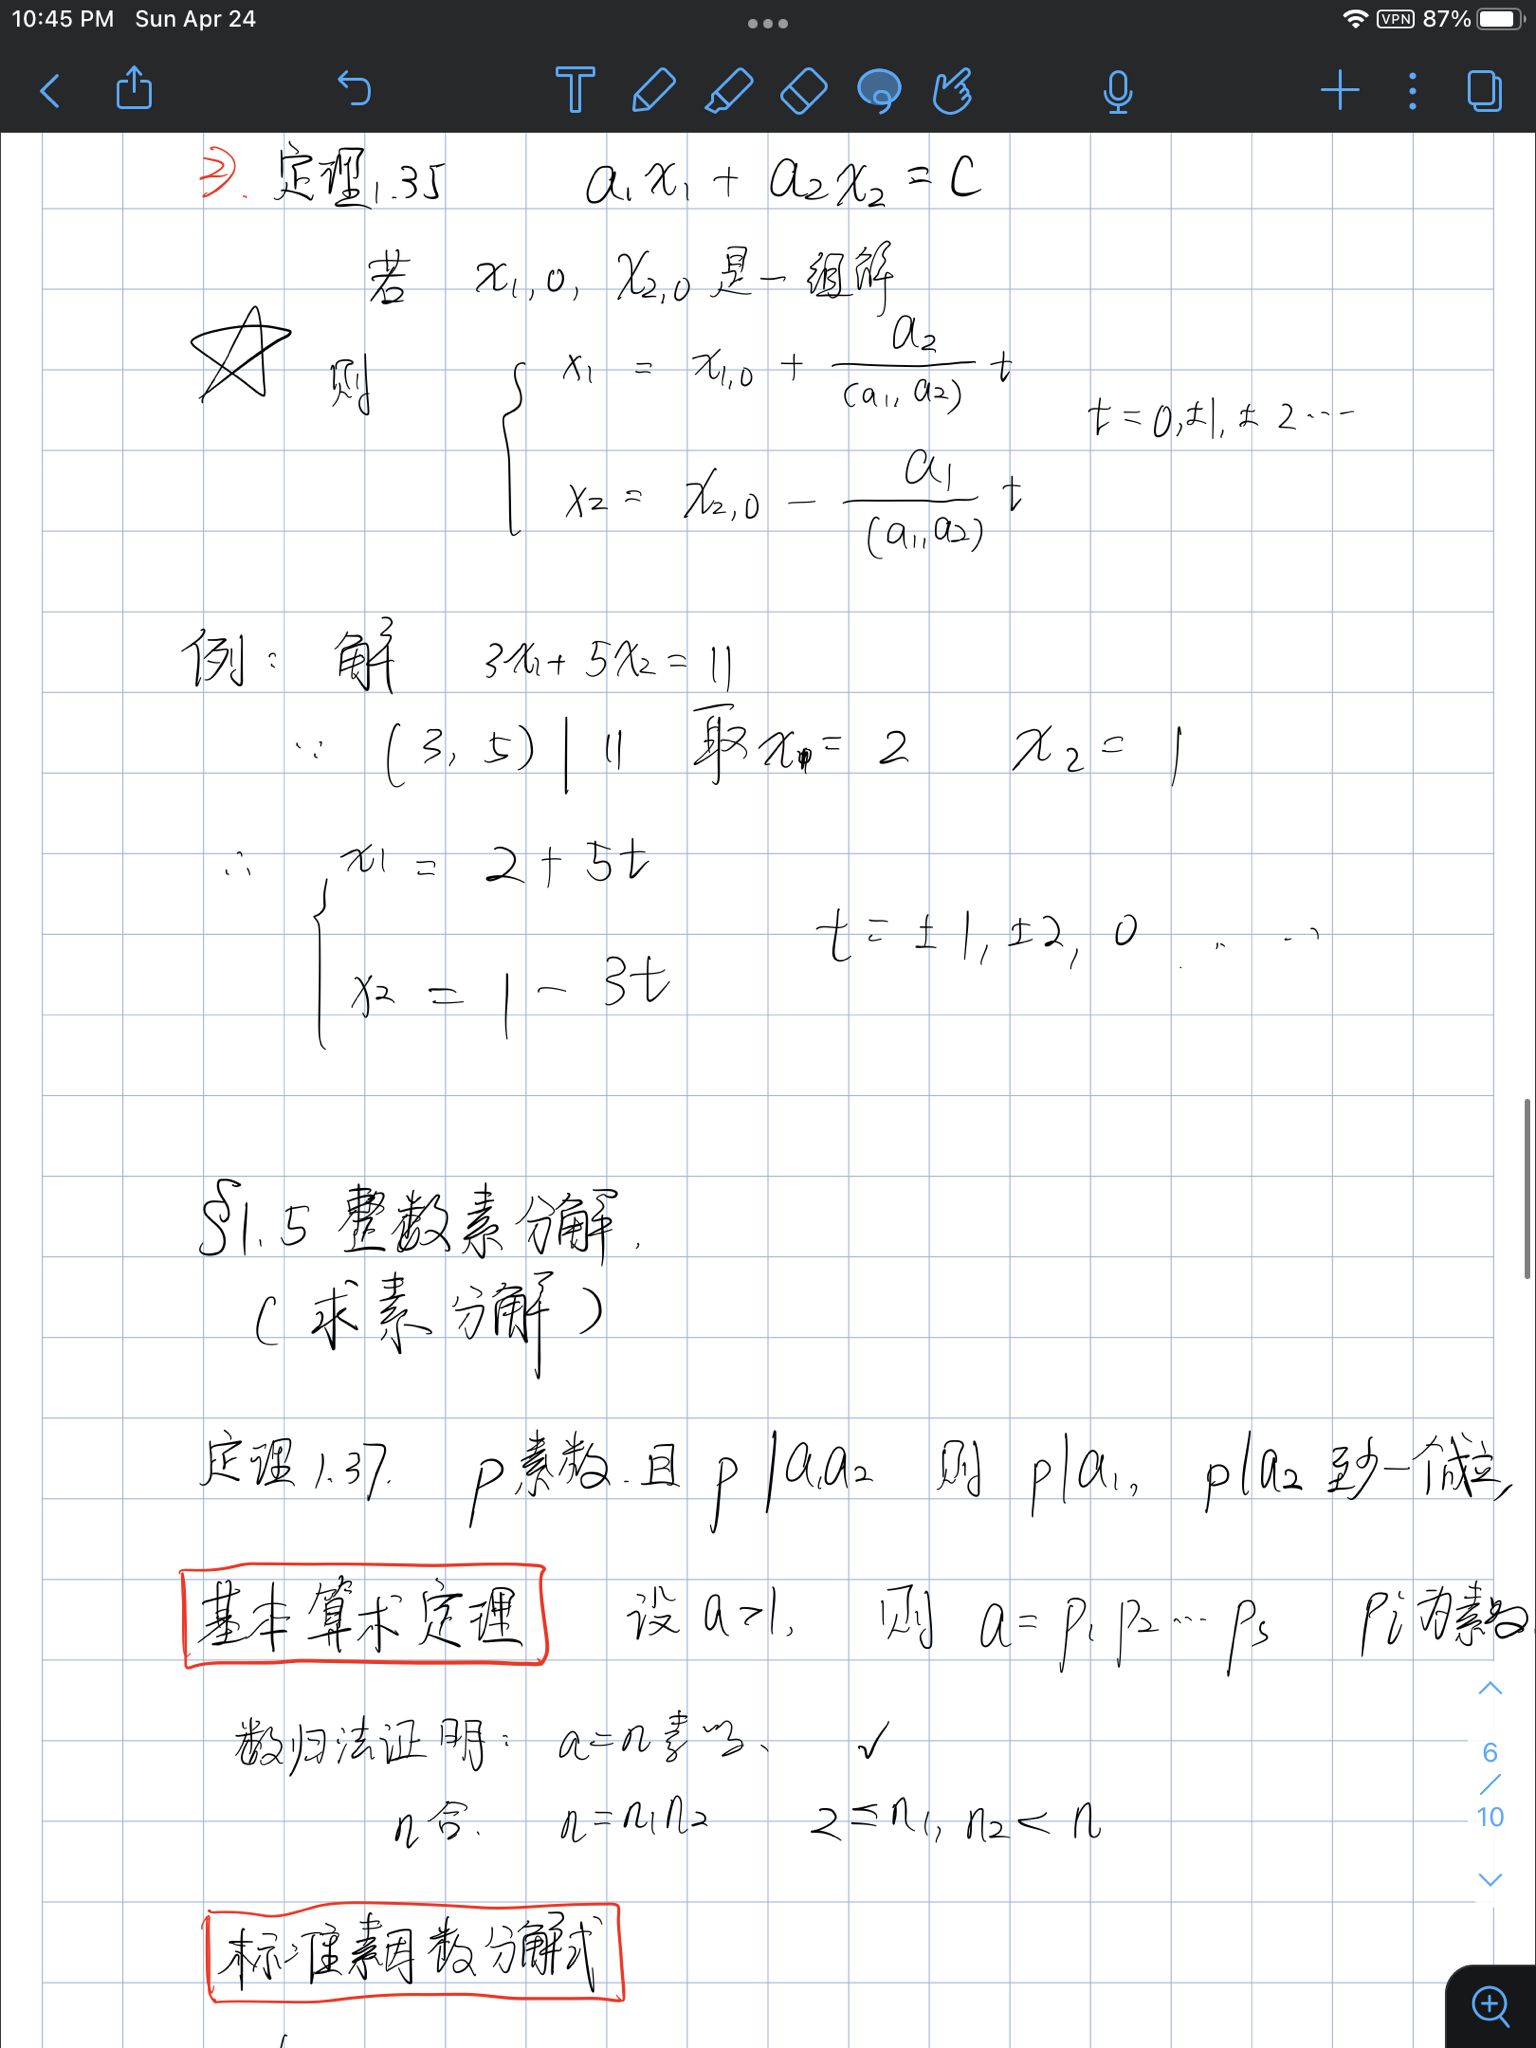 10:45 PM Sun Apr 24 VPN 87%
2). 定理1.35 a₁x₁ + a₂x₂ = C
若 x₁,₀, x₂,₀ 是一组解
则 { x₁ = x₁,₀ + a₂/(a₁, a₂) t
t = 0, ±1, ± 2 ...
x₂ = x₂,₀ − a₁/(a₁, a₂) t
例: 解 3x₁ + 5x₂ = 11
∵ (3, 5) | 11 取 x₁ = 2 x₂ = 1
∴ { x₁ = 2 + 5t
t = ± 1, ±2, 0 ...
x₂ = 1 − 3t
§1.5 整数素分解.
(求素分解)
定理1.37. p素数.且 p | a₁a₂ 则 p|a₁, p|a₂ 至少一个成立,
基本算术定理 设 a>1, 则 a = p₁ p₂ ... pₛ pᵢ 为素数.
数归法证明: a = n 素 ✓
n合. n = n₁n₂ 2 ≤ n₁, n₂ < n
标准素因数分解式
6
/
10